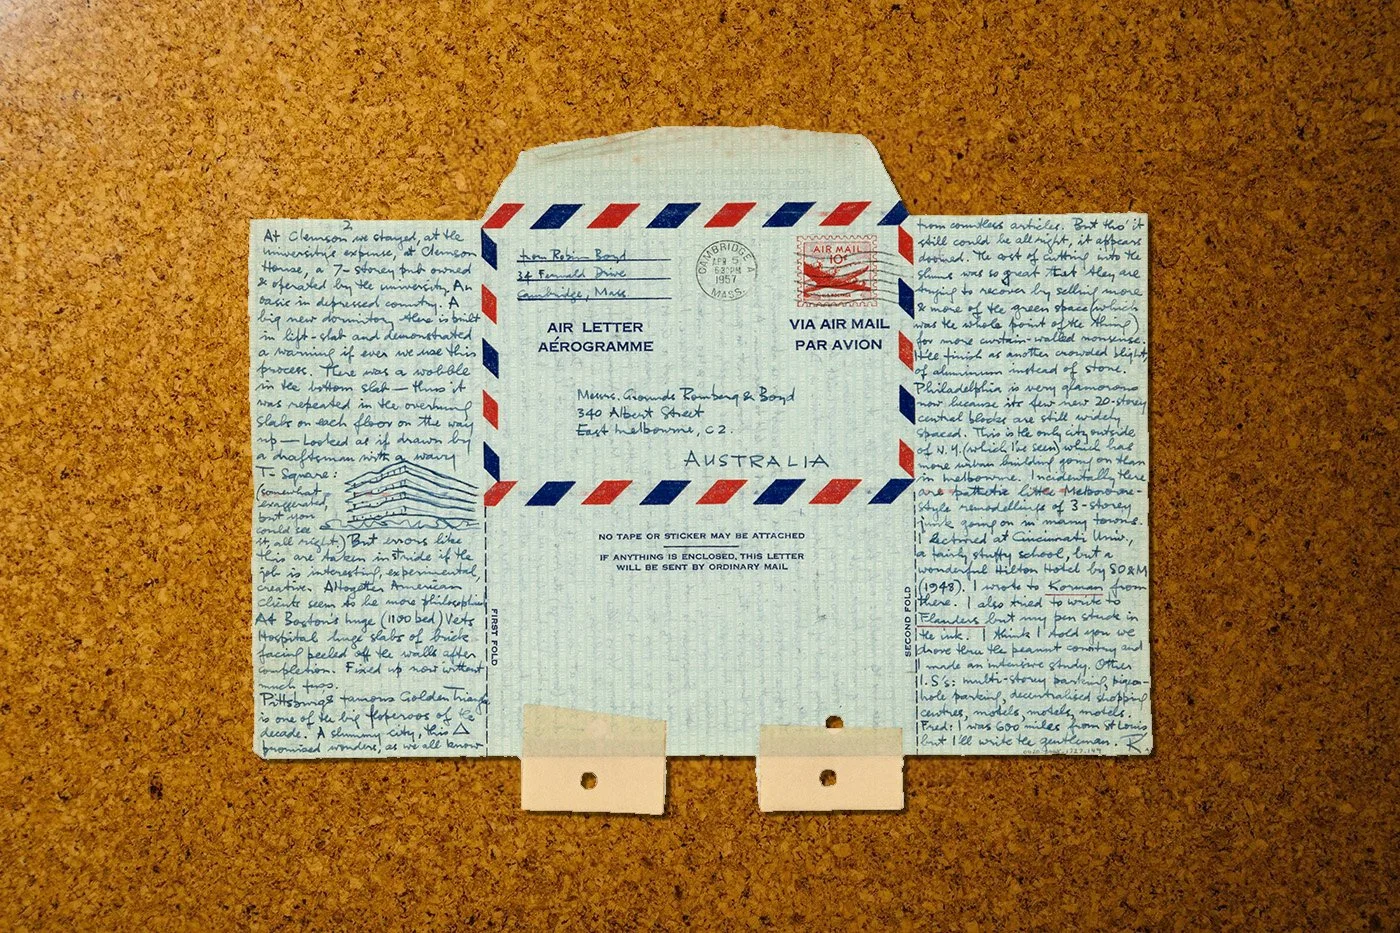 2
At Clemson we stayed, at the
university's expense, at Clemson
House, a 7-storey pub owned
& operated by the university. An
oasis in depressed country. A
big new dormitory there is built
in lift-slab and demonstrated
a warning if ever we use this
process. There was a wobble
in the bottom slab — thus it
was repeated in the overhung
slabs on each floor on the way
up — Looked as if drawn by
a draftsman with a wavy
T-Square:
(somewhat
exaggerated,
but you
could see
it, all right.) But errors like
this are taken in stride if the
job is interesting, experimental,
creative. Altogether American
clients seem to be more philosophical
At Boston's huge (1100 bed) Vets
Hospital huge slabs of brick
facing peeled off the walls after
completion. Fixed up now without
much fuss.
Pittsburg's famous Golden Triangle
is one of the big floperoos of the
decade. A slummy city, this △
promised wonders, as we all know
from Robin Boyd
34 Fernald Drive
Cambridge, Mass
CAMBRIDGE A
APR 5
6 30 PM
1957
MASS.
AIR MAIL
10¢
AIR LETTER
AÉROGRAMME
VIA AIR MAIL
PAR AVION
Messrs. Grounds Romberg & Boyd
340 Albert Street
East Melbourne, C2.
AUSTRALIA
NO TAPE OR STICKER MAY BE ATTACHED
IF ANYTHING IS ENCLOSED, THIS LETTER
WILL BE SENT BY ORDINARY MAIL
FIRST FOLD
SECOND FOLD
from countless articles. But tho' it
still could be all right, it appears
doomed. The cost of cutting into the
slums was so great that they are
trying to recover by selling more
& more of the green space (which
was the whole point of the thing)
for more curtain-walled nonsense.
It'll finish as another crowded blight,
of aluminum instead of stone.
Philadelphia is very glamorous
now because its few new 20-storey
central blocks are still widely
spaced. This is the only city outside
of N.Y. (which I've seen) which has
more urban building going on than
in Melbourne. Incidentally there
are pathetic little Melbourne-
style remodellings of 3-storey
junk going on in many towns.
I lectured at Cincinnati Univ.,
a fairly stuffy school, but a
wonderful Hilton Hotel by SO&M
(1948). I wrote to Korman from
there. I also tried to write to
Flanders but my pen stuck in
the ink. I think I told you we
drove thru the peanut country and
I made an intensive study. Other
I.S's: multi-storey parking, pigeon-
hole parking, decentralised shopping
centres, models, models, models.
Fred: I was 600 miles from St Louis
but I'll write the gentleman. R.